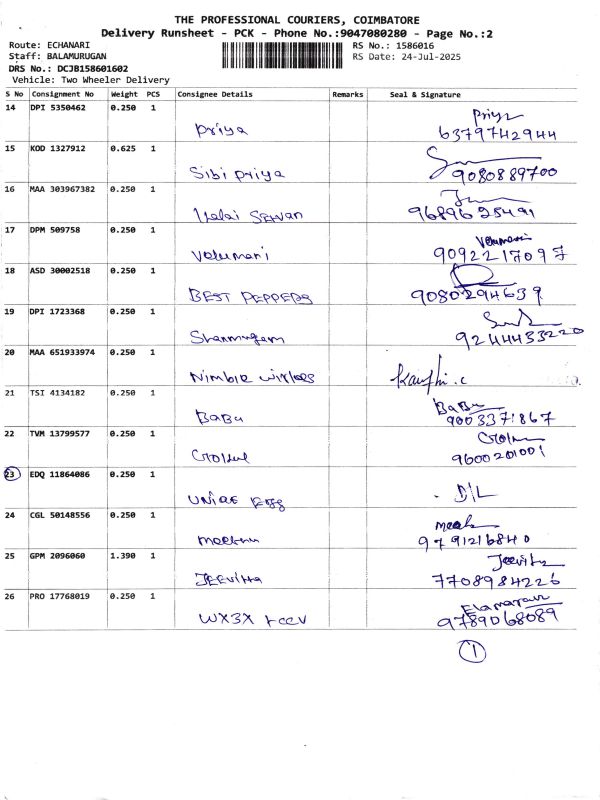 THE PROFESSIONAL COURIERS, COIMBATORE
Delivery Runsheet - PCK - Phone No.:9047080280 - Page No.:2
Route: ECHANARI
RS No.: 1586016
Staff: BALAMURUGAN
RS Date: 24-Jul-2025
DRS No.: DCJB158601602
Vehicle: Two Wheeler Delivery
S No Consignment No Weight PCS Consignee Details Remarks Seal & Signature
14 DPI 5350462 0.250 1
Priya
priya 6379742944
15 KOD 1327912 0.625 1
Sibi priya 9080889700
16 MAA 303967382 0.250 1
Kalai Selvan 9689625491
17 DPM 509758 0.250 1
Velumani
Velumani 9092217097
18 ASD 30002518 0.250 1
BEST PEPPERS 9080294639
19 DPI 1723368 0.250 1
Shanmugam 9244433220
20 MAA 651933974 0.250 1
Nimble wireless
21 TSI 4134182 0.250 1
BaBu
BaBu 9003371867
22 TVM 13799577 0.250 1
9600201001
23 EDQ 11864086 0.250 1
D/L
24 CGL 50148556 0.250 1
9791216840
25 GPM 2096060 1.390 1
Jeevitha
Jeevitha 7708984226
26 PRO 17768019 0.250 1
Elamaran
9789068089
1